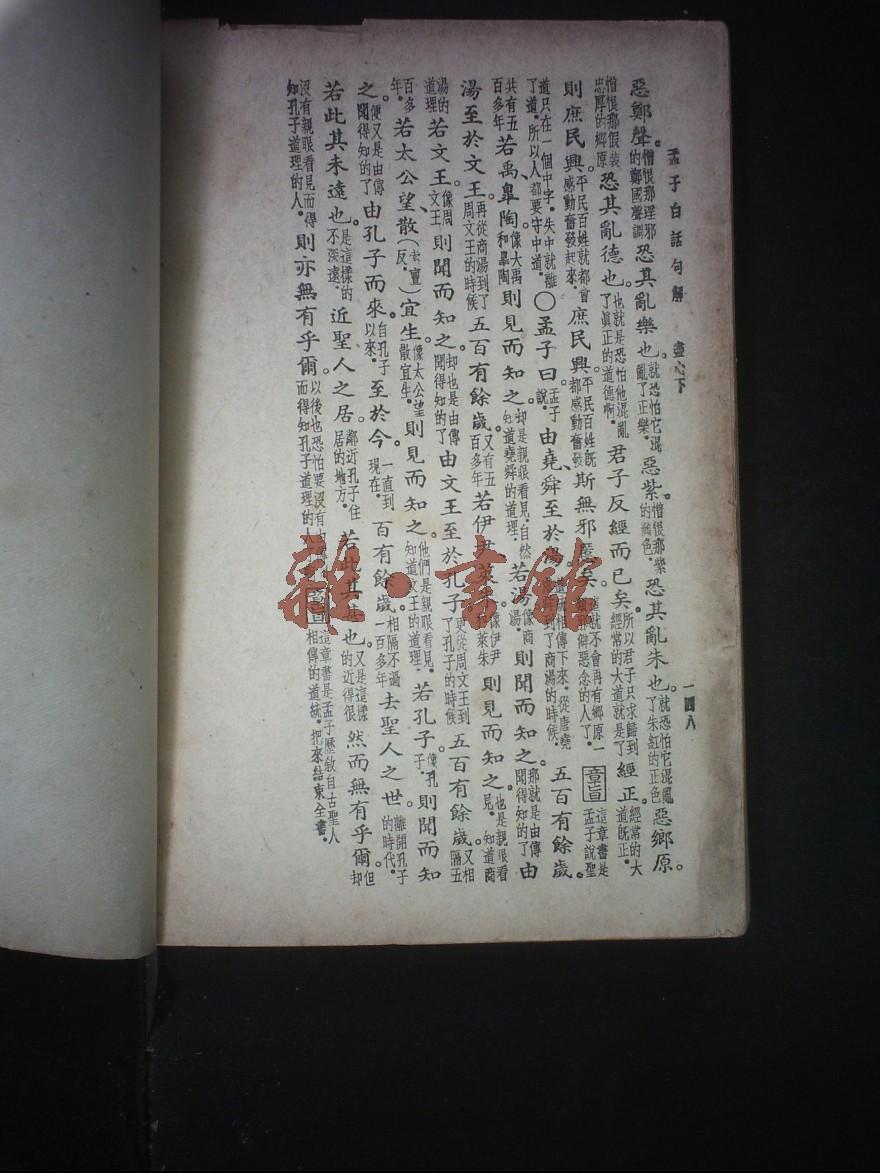 孟子白話句解　盡心下　一四八
惡鄭聲。憎恨那淫邪的鄭國聲調恐其亂樂也。就恐怕它混亂了正樂。惡紫。憎恨那紫的顏色恐其亂朱也。就恐怕它混亂了朱紅的正色惡鄉原。
憎恨那假裝忠厚的鄉原恐其亂德也。也就是恐怕他混亂了眞正的道德啊。君子反經而已矣。所以君子只求歸到經常的大道就是了經正。經常的大道旣正。
則庶民興。平民百姓就都會感動奮發起來。庶民興。平民百姓旣都感動奮發斯無邪慝矣。這就不會再有鄉原一邪僻惡念的人了。章旨這章書是孟子說聖
道只在一個中字。失中就離了道。所以人都要守中道。〇孟子曰。孟子說。由堯、舜至於湯。道統相傳下來。從唐堯到了商湯的時候。五百有餘歲。
共有五百多年若禹、皋陶。像大禹和皋陶則見而知之。却是親眼看見。自然知道堯舜的道理。若湯。像商湯。則聞而知之。那就是由傳聞得知的了由
湯至於文王。再從商湯到了周文王的時候五百有餘歲。又有五百多年若伊尹萊像伊尹萊朱則見而知之。也是親眼看見。知道商
湯的道理若文王。像周文王則聞而知之。却也是由傳聞得知的了由文王至於孔子。更從周文王到了孔子的時候五百有餘歲。又相隔五
百多年。若太公望、散(素亶反。)宜生。像太公望散宜生。則見而知之。他們是親眼看見。知道文王的道理。若孔子。像孔子。則聞而知
之。便又是由傳聞得知的了由孔子而來。自孔子以來。至於今。一直到現在。百有餘歲。相隔不過一百多年去聖人之世。離開孔子的時代。
若此其未遠也。是這樣的不深遠。近聖人之居。鄰近孔子住居的地方。若此其甚也。又是這樣的近得很然而無有乎爾。但却
沒有親眼看見而得知孔子道理的人。則亦無有乎爾。以後也恐怕要沒有由傳而得知孔子道理的人章旨這章書是孟子歷敘自古聖人相傳的道統。把來結束全書。
雜·書館